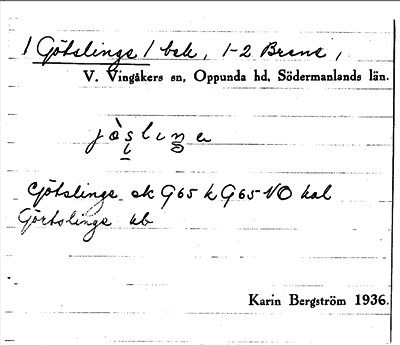 1 Götslinge / bsk, 1-2 Brene,
V. Vingåkers sn, Oppunda hd, Södermanlands län.
Götslinge ek G65 k G65 NO kal
Görtslinge kb
Karin Bergström 1936.